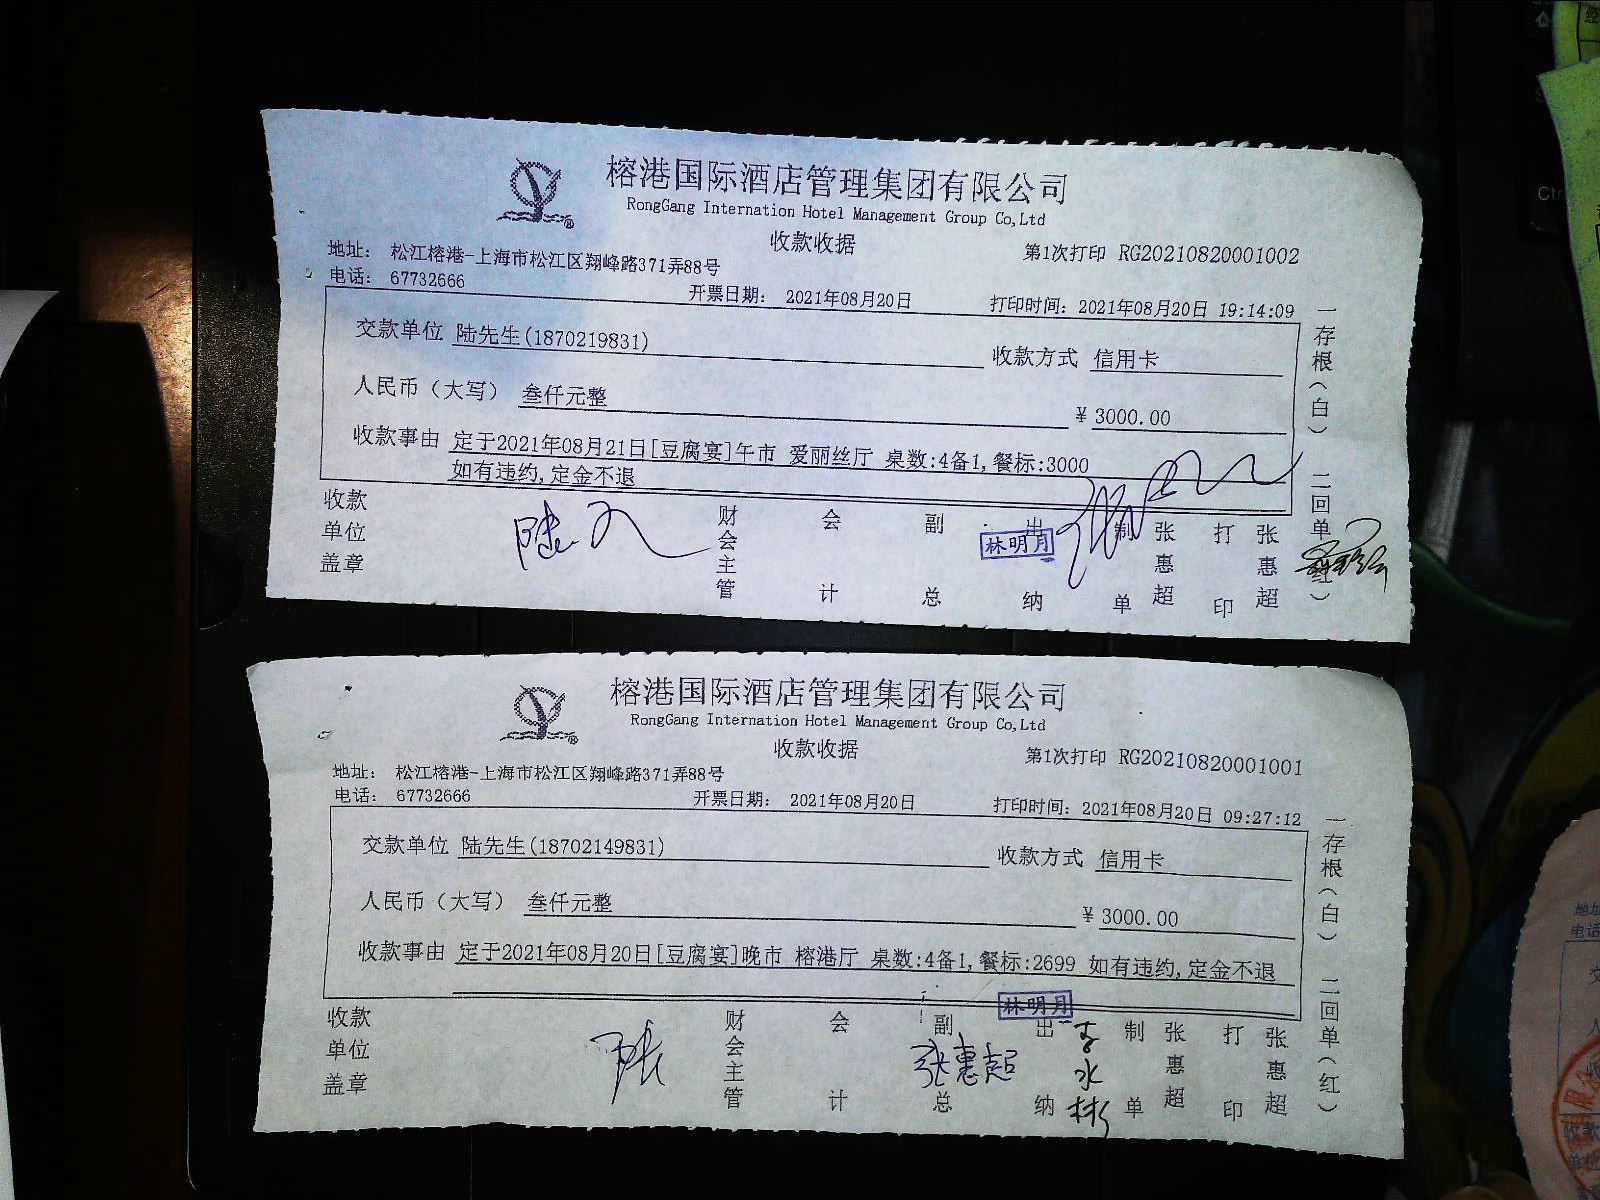 榕港国际酒店管理集团有限公司
RongGang Internation Hotel Management Group Co,Ltd
收款收据
第1次打印 RG20210820001002
地址： 松江榕港-上海市松江区翔峰路371弄88号
电话： 67732666
开票日期： 2021年08月20日
打印时间：2021年08月20日 19:14:09
交款单位 陆先生(1870219831)
收款方式 信用卡
人民币（大写） 叁仟元整
¥ 3000.00
收款事由 定于2021年08月21日[豆腐宴]午市 爱丽丝厅 桌数:4备1,餐标:3000
如有违约,定金不退
收款单位盖章
财会主管
会计
副总
出纳
林明月
制单 张惠超
打印 张惠超
一存根（白） 二回单（红）
榕港国际酒店管理集团有限公司
RongGang Internation Hotel Management Group Co,Ltd
收款收据
第1次打印 RG20210820001001
地址： 松江榕港-上海市松江区翔峰路371弄88号
电话： 67732666
开票日期： 2021年08月20日
打印时间：2021年08月20日 09:27:12
交款单位 陆先生(18702149831)
收款方式 信用卡
人民币（大写） 叁仟元整
¥ 3000.00
收款事由 定于2021年08月20日[豆腐宴]晚市 榕港厅 桌数:4备1,餐标:2699 如有违约,定金不退
收款单位盖章
陆
财会主管
会计
副总
张惠超
出纳
林明月
制单 张惠超
打印 张惠超
一存根（白） 二回单（红）